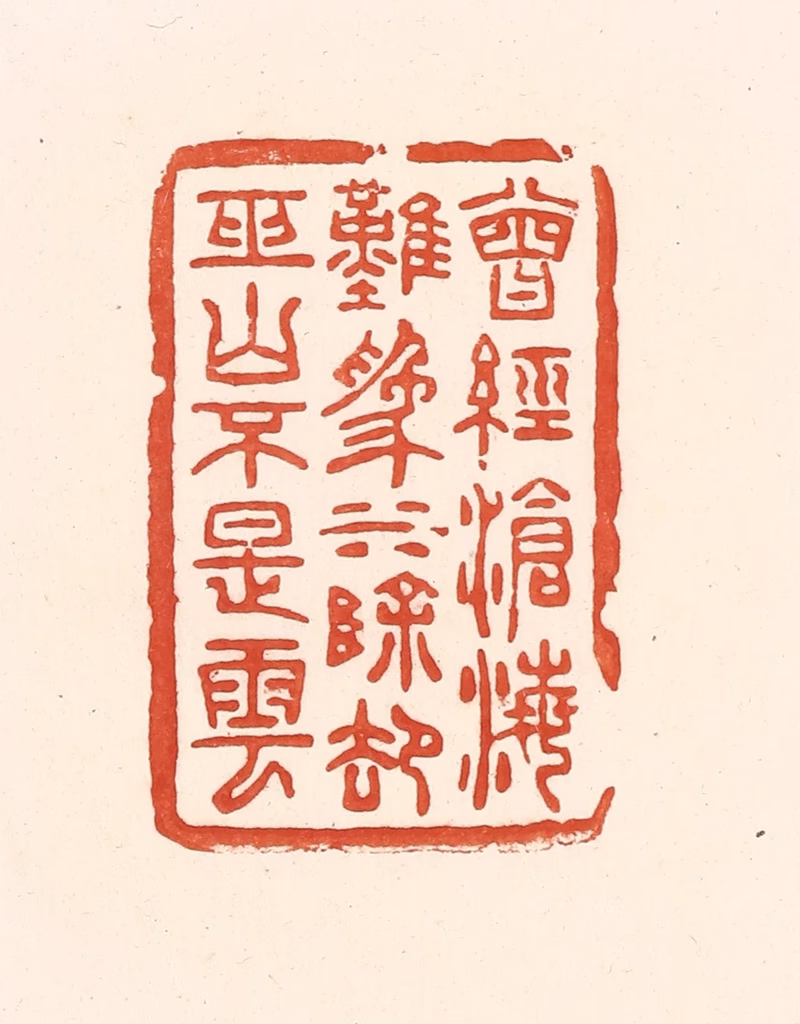 曾經滄海
難爲水除卻
巫山不是雲